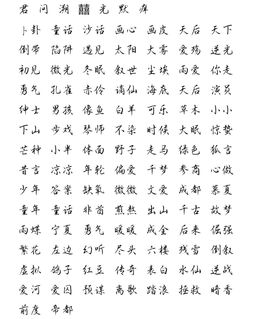 君 问 湖 囍 光 默 痒
卜卦 童话 沙话 画心 画皮 天后 天下
倒带 陷阱 遇见 太阳 大雾 爱鸡 逆光
初见 微光 冬眠 叙世 尘埃 雨爱 你走
勇气 孔雀 赤伶 谪仙 海底 天后 演员
绅士 男孩 像鱼 白羊 可乐 草木 小小
下山 步戏 琴师 不染 时候 大眠 惊蛰
芒种 小半 体面 野子 走马 绿色 狐言
昔言 凉凉 年轮 偏爱 千梦 参商 心做
少年 答案 缺氧 微微 文爱 成都 慕夏
童年 童话 非酋 煎熬 出山 千古 故梦
雨蝶 宁夏 勇气 暖暖 成全 后来 倔强
繁花 左边 幻听 尽头 六楼 残雪 倒叙
虚拟 鸽子 红豆 传奇 表白 水仙 逆战
爱河 爱囚 预谋 离歌 踏浪 拯救 暗香
前度 帝都